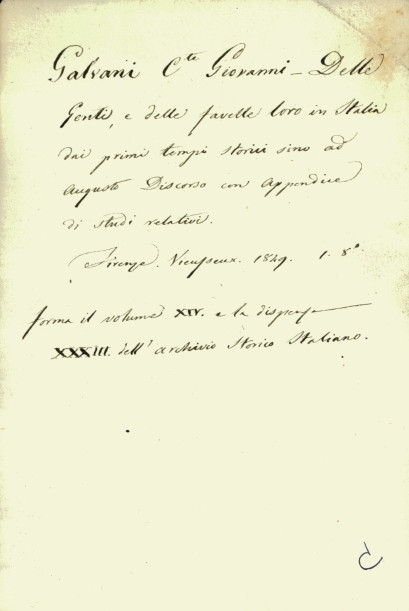 Galvani C.te Giovanni - Delle
Genti, e delle favelle loro in Italia
dai primi tempi storici sino ad
Augusto Discorso con Appendice
di studi relativi.
Firenze. Vieusseux. 1849. 1. 8°
forma il volume XIV. e la dispensa
XXXIII. dell' archivio Storico Italiano.